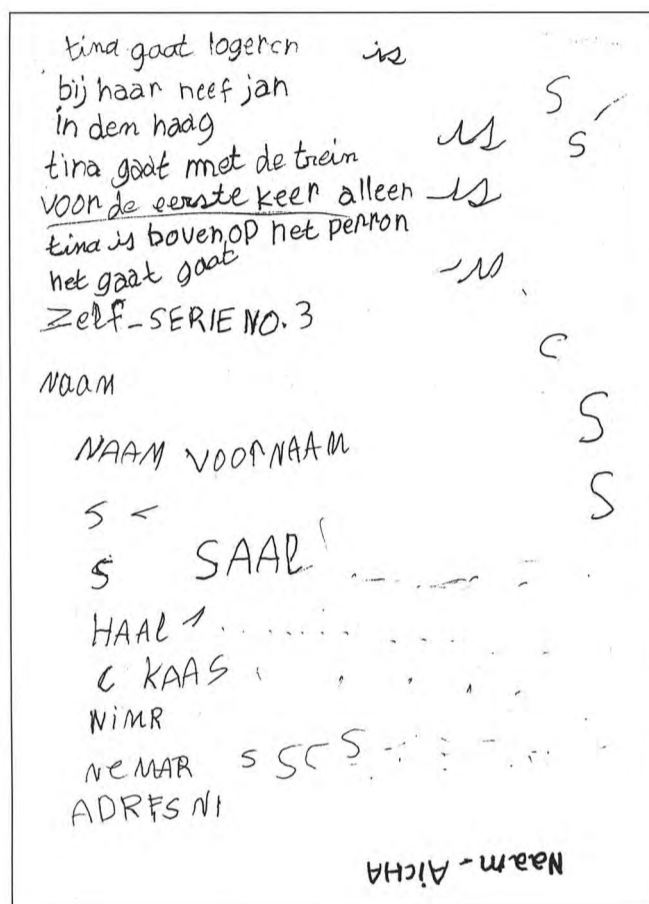 tina gaat logeren is
bij haar neef jan
in dem haag
tina gaat met de trein is
voor de eerste keer alleen is
tina is boven op het perron
het gaat gaat is
Zelf-SERIE NO. 3
Naam
NAAM VOORNAAM
S
S
C
S
S
S <
S SAAL
HAAL 1
C KAAS
NiMR
NeMAR S S C S
ADRES NI
Naam - AiCHA